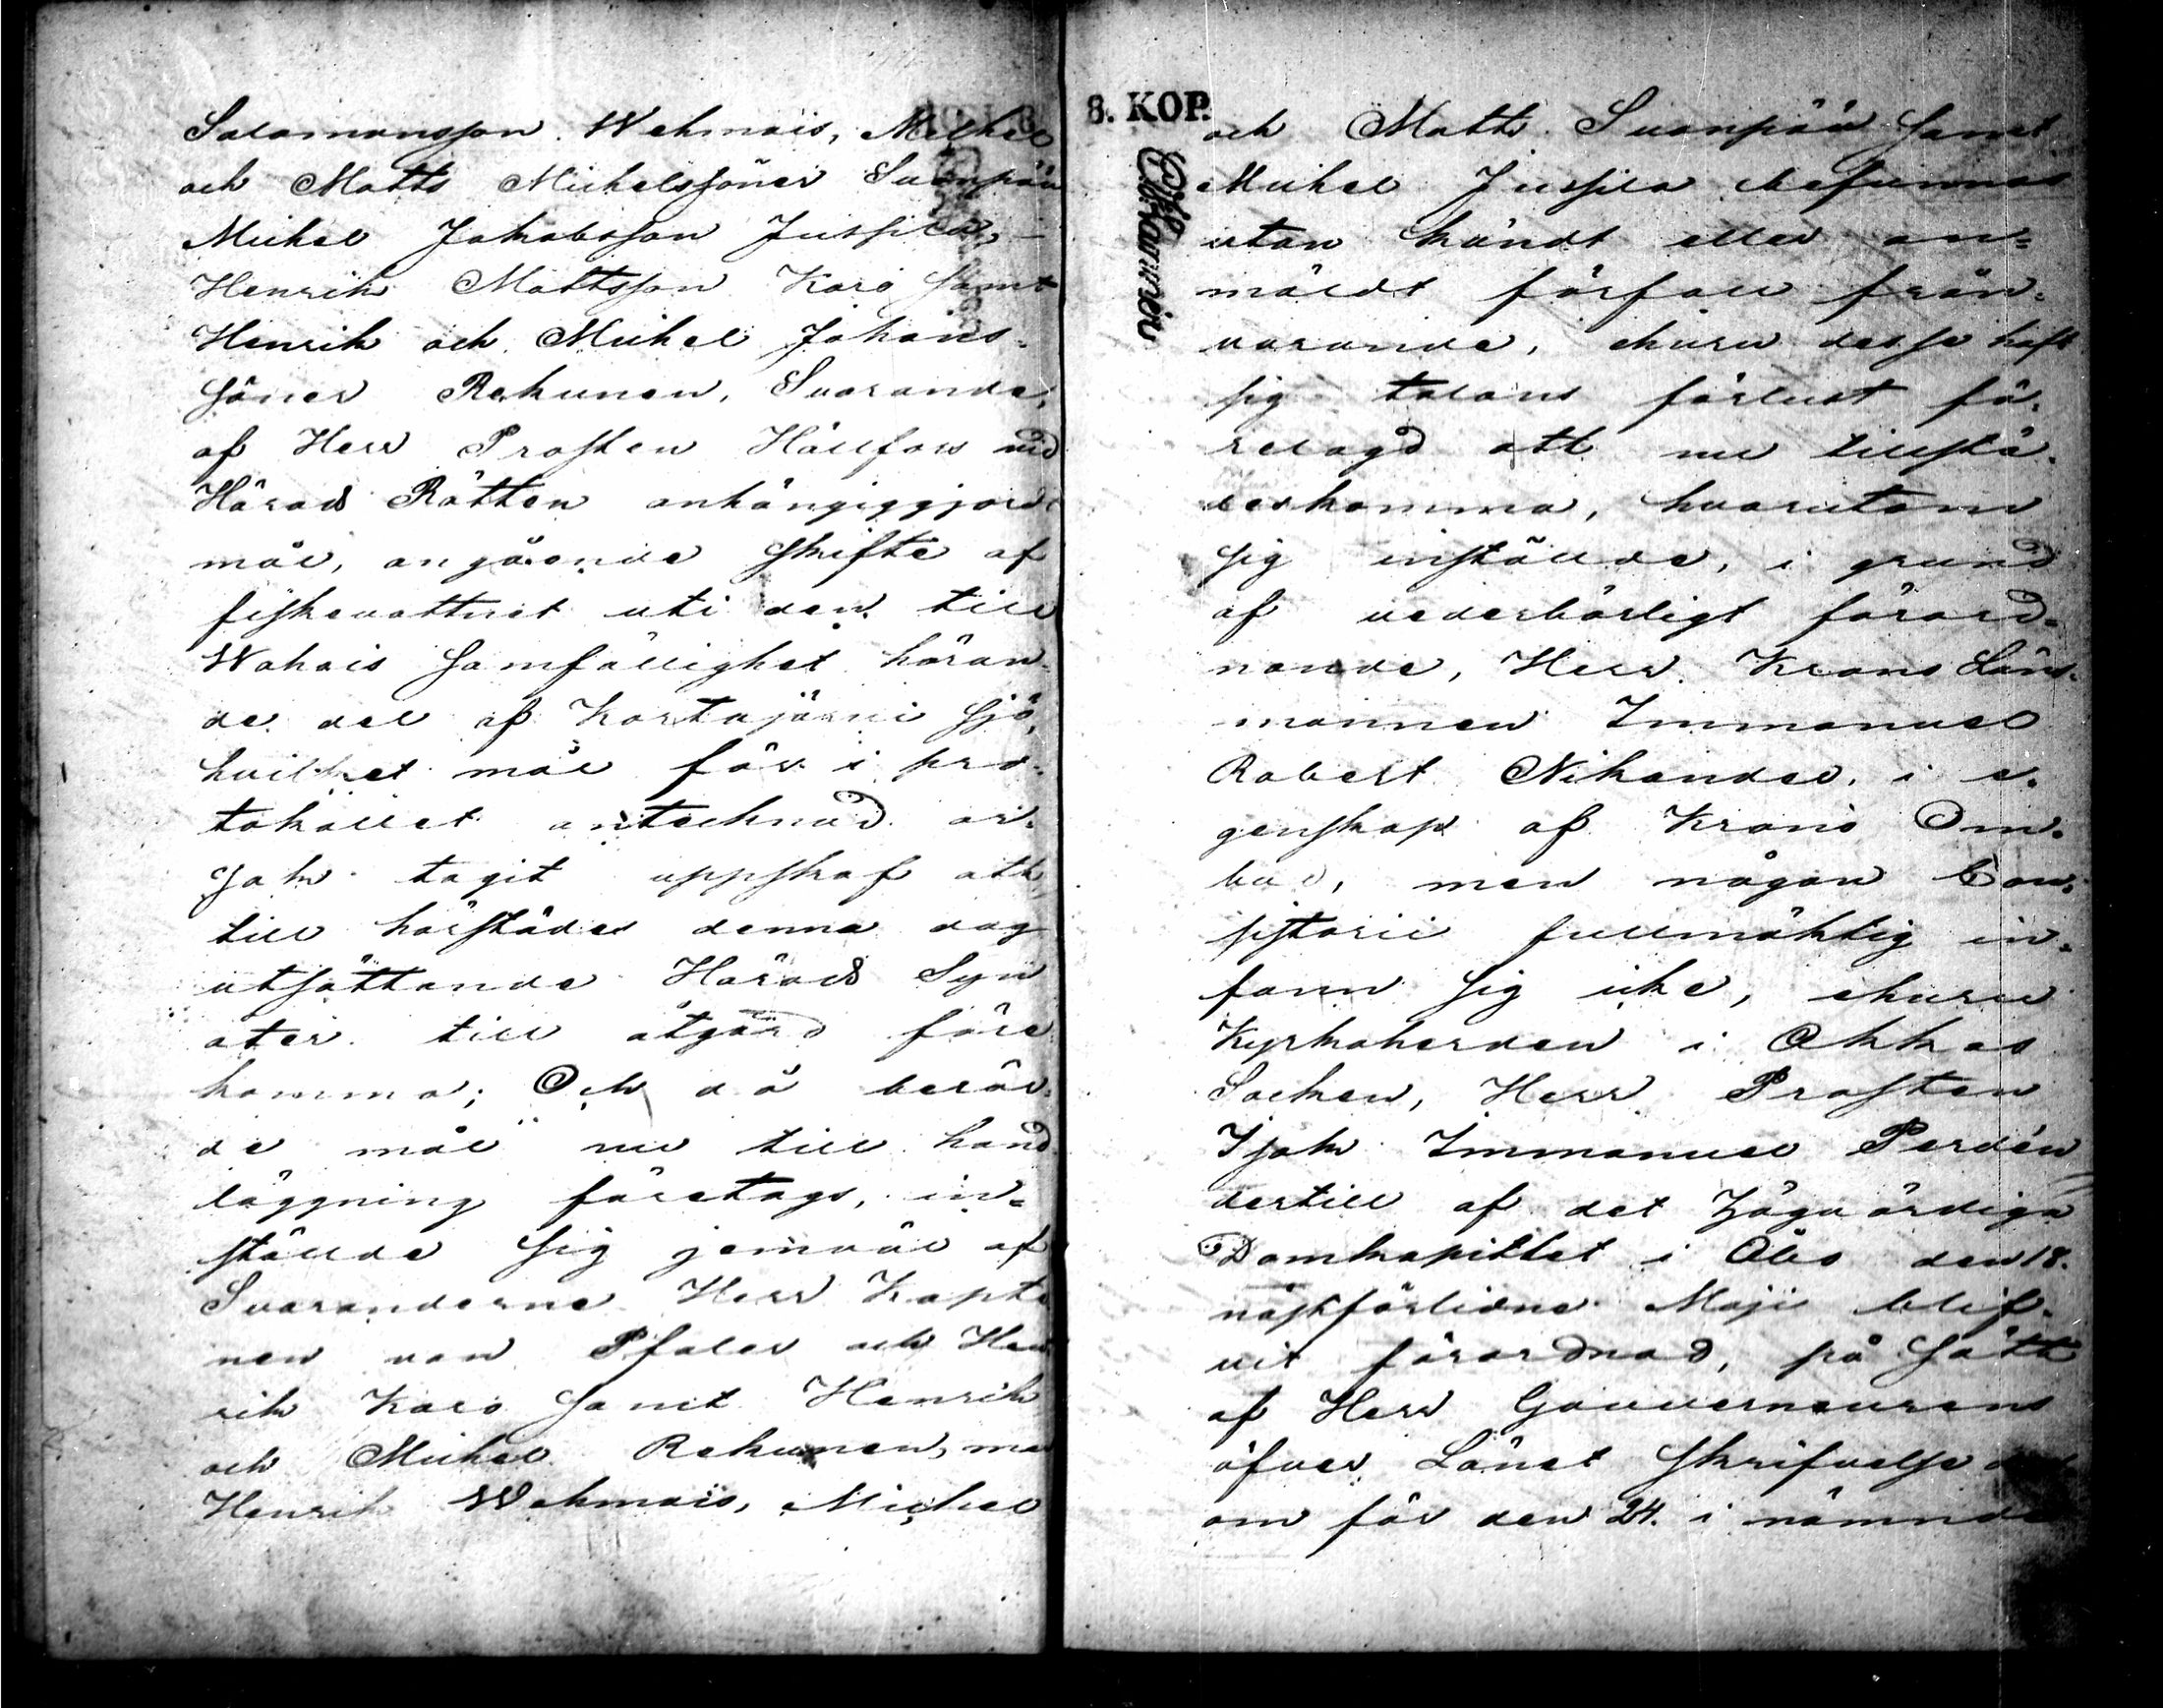 Salomonsson Wehmais, Michel
och Matts Michelssöner Suonpää
Michel Jakobsson Jussila,
Henrik Mattsson Karo samt
Henrik och Michel Johans-
söner Rekunen, Svarande,
af Herr Prosten Hällfors vid
Härads Rätten anhängiggjorde
mål, angående skifte af
fiskevattnet uti den till
Wahais samfällighet höran-
de del af Kortajärvi sjö,
hvilket mål för i pro-
tokollet antecknad or-
sak tagit uppskof att
till härstädes denna dag
utsättande Härads Syn
åter till åtgärd före
komma; Och då berör-
de mål nu till hand-
läggning företogs, in-
stälde sig jemväl af
Svaranderne Herr Kapte
nen von Pfaler och Hen
rik Karo samt Henrik
och Michel Rekunen, men
Henrik Wehmais, Michel
8. KOP.
och Matts Suonpää samt
Michel Jussila befunnos
utan kändt eller an-
mäldt förfall från-
varande, churu desse haft
sig talans förlust fö-
relagd att nu tillstä-
deskomma, hvarutom
sig inställde, i grund
af vederbörligt förord-
nande, Herr Krono Läns-
mannen Immanuel
Robert Nikander, i e-
genskap af Krono Om-
bud, men någon Con-
sistorii fullmäktig in-
fann sig icke, churu
Kyrkoherden i Akkas
Socken, Herr Prosten
Isak Immanuel Perdén
dertill af det Högvördiga
Domkapitlet i Åbo den 18.
nästförlidne Maji blif-
vit förordnad, på sätt
af Herr Gouverneurens
öfver Länet skrifvelse
om för den 24. i nämnde